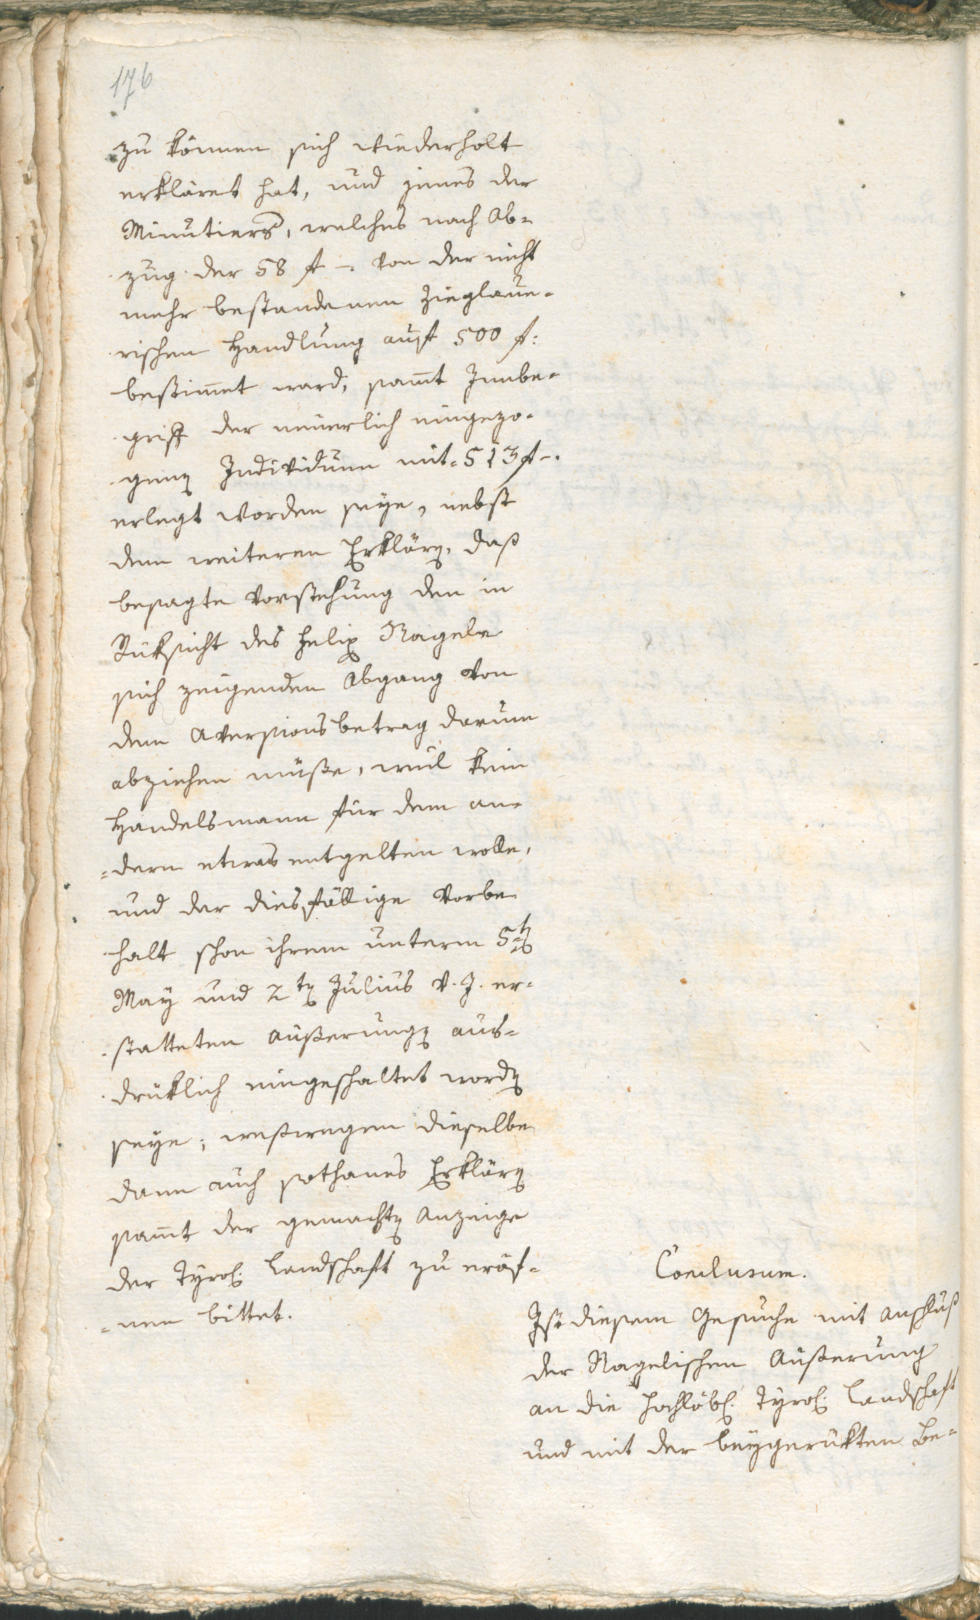 176
zu können sich wiederholt
erkläret hat, und jenes der
Minutiers, welches nach Ab-
zug der 58 f –. von der nicht
mehr bestandenen Zieglaue-
rischen Handlung auf 500 f:
bestim̅et ward, sam̅t Innbe-
griff der neuerlich eingezo-
genen Individuen mit 513 f –.
erlegt worden seye, nebst
dem weiteren Erklären, daß
besagte Vorstehung den in
Rüksicht des Felix Nagele
sich zeigenden Abgang von
dem Aversionsbetrag darum
abziehen müße, weil kein
Handelsmann für dem an-
-dern etwas entgelten wolle,
und der diesfällige Vorbe
halt schon ihrem unterm 5ten
May und 2ten Julius v. J. er-
statteten Äußerungen aus-
drüklich eingeschaltet worden
seye; weßwegen dieselbe
dann auch sothanes Erklären
sam̅t der gemachten Anzeige
der Tyrol: Landschaft zu eröf-
-nen bittet.
Conclusum.
Ist diesem Gesuche mit Anschluß
der Nagelischen Äußerung
an die Hochlöbl: Tyrol: Landschaft
und mit der beygerükten Be-